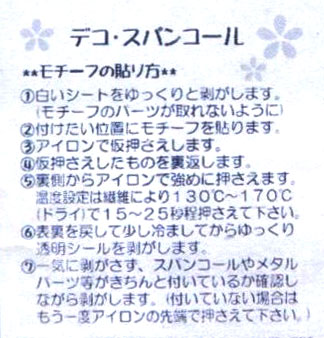 デコ・スパンコール
**モチーフの貼り方**
①白いシートをゆっくりと剥がします。
(モチーフのパーツが取れないように)
②付けたい位置にモチーフを貼ります。
③アイロンで仮押さえします。
④仮押さえしたものを裏返します。
⑤裏側からアイロンで強めに押さえます。
温度設定は繊維により130℃～170℃
(ドライ)で15～25秒程押さえて下さい。
⑥表裏を戻して少し冷ましてからゆっくり
透明シールを剥がします。
⑦一気に剥がさず、スパンコールやメタル
パーツ等がきちんと付いているか確認し
ながら剥がします。(付いていない場合は
もう一度アイロンの先端で押さえて下さい。)